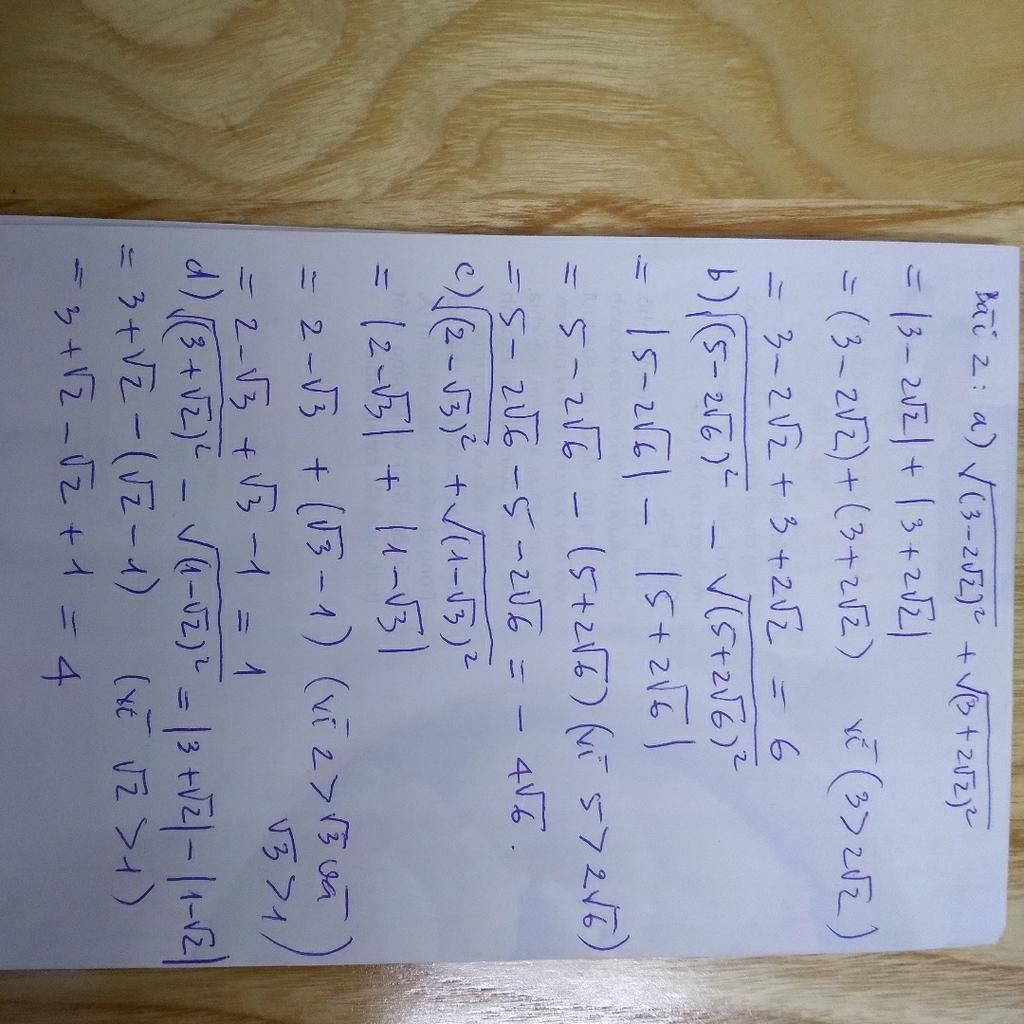 Bài 2: a) √(3-2√2)² + √(3+2√2)²
= |3-2√2| + |3+2√2|
= (3-2√2)+(3+2√2) vì (3>2√2)
= 3-2√2 + 3+2√2 = 6
b) √(5-2√6)² - √(5+2√6)²
= |5-2√6| - |5+2√6|
= 5-2√6 - (5+2√6) (vì 5>2√6)
= 5-2√6-5-2√6 = -4√6.
c) √(2-√3)² + √(1-√3)²
= |2-√3| + |1-√3|
= 2-√3 + (√3-1) (vì 2>√3 và
√3>1)
= 2-√3+√3-1 = 1
d) √(3+√2)² - √(1-√2)² = |3+√2| - |1-√2|
= 3+√2-(√2-1) (vì √2>1)
= 3+√2-√2+1 = 4